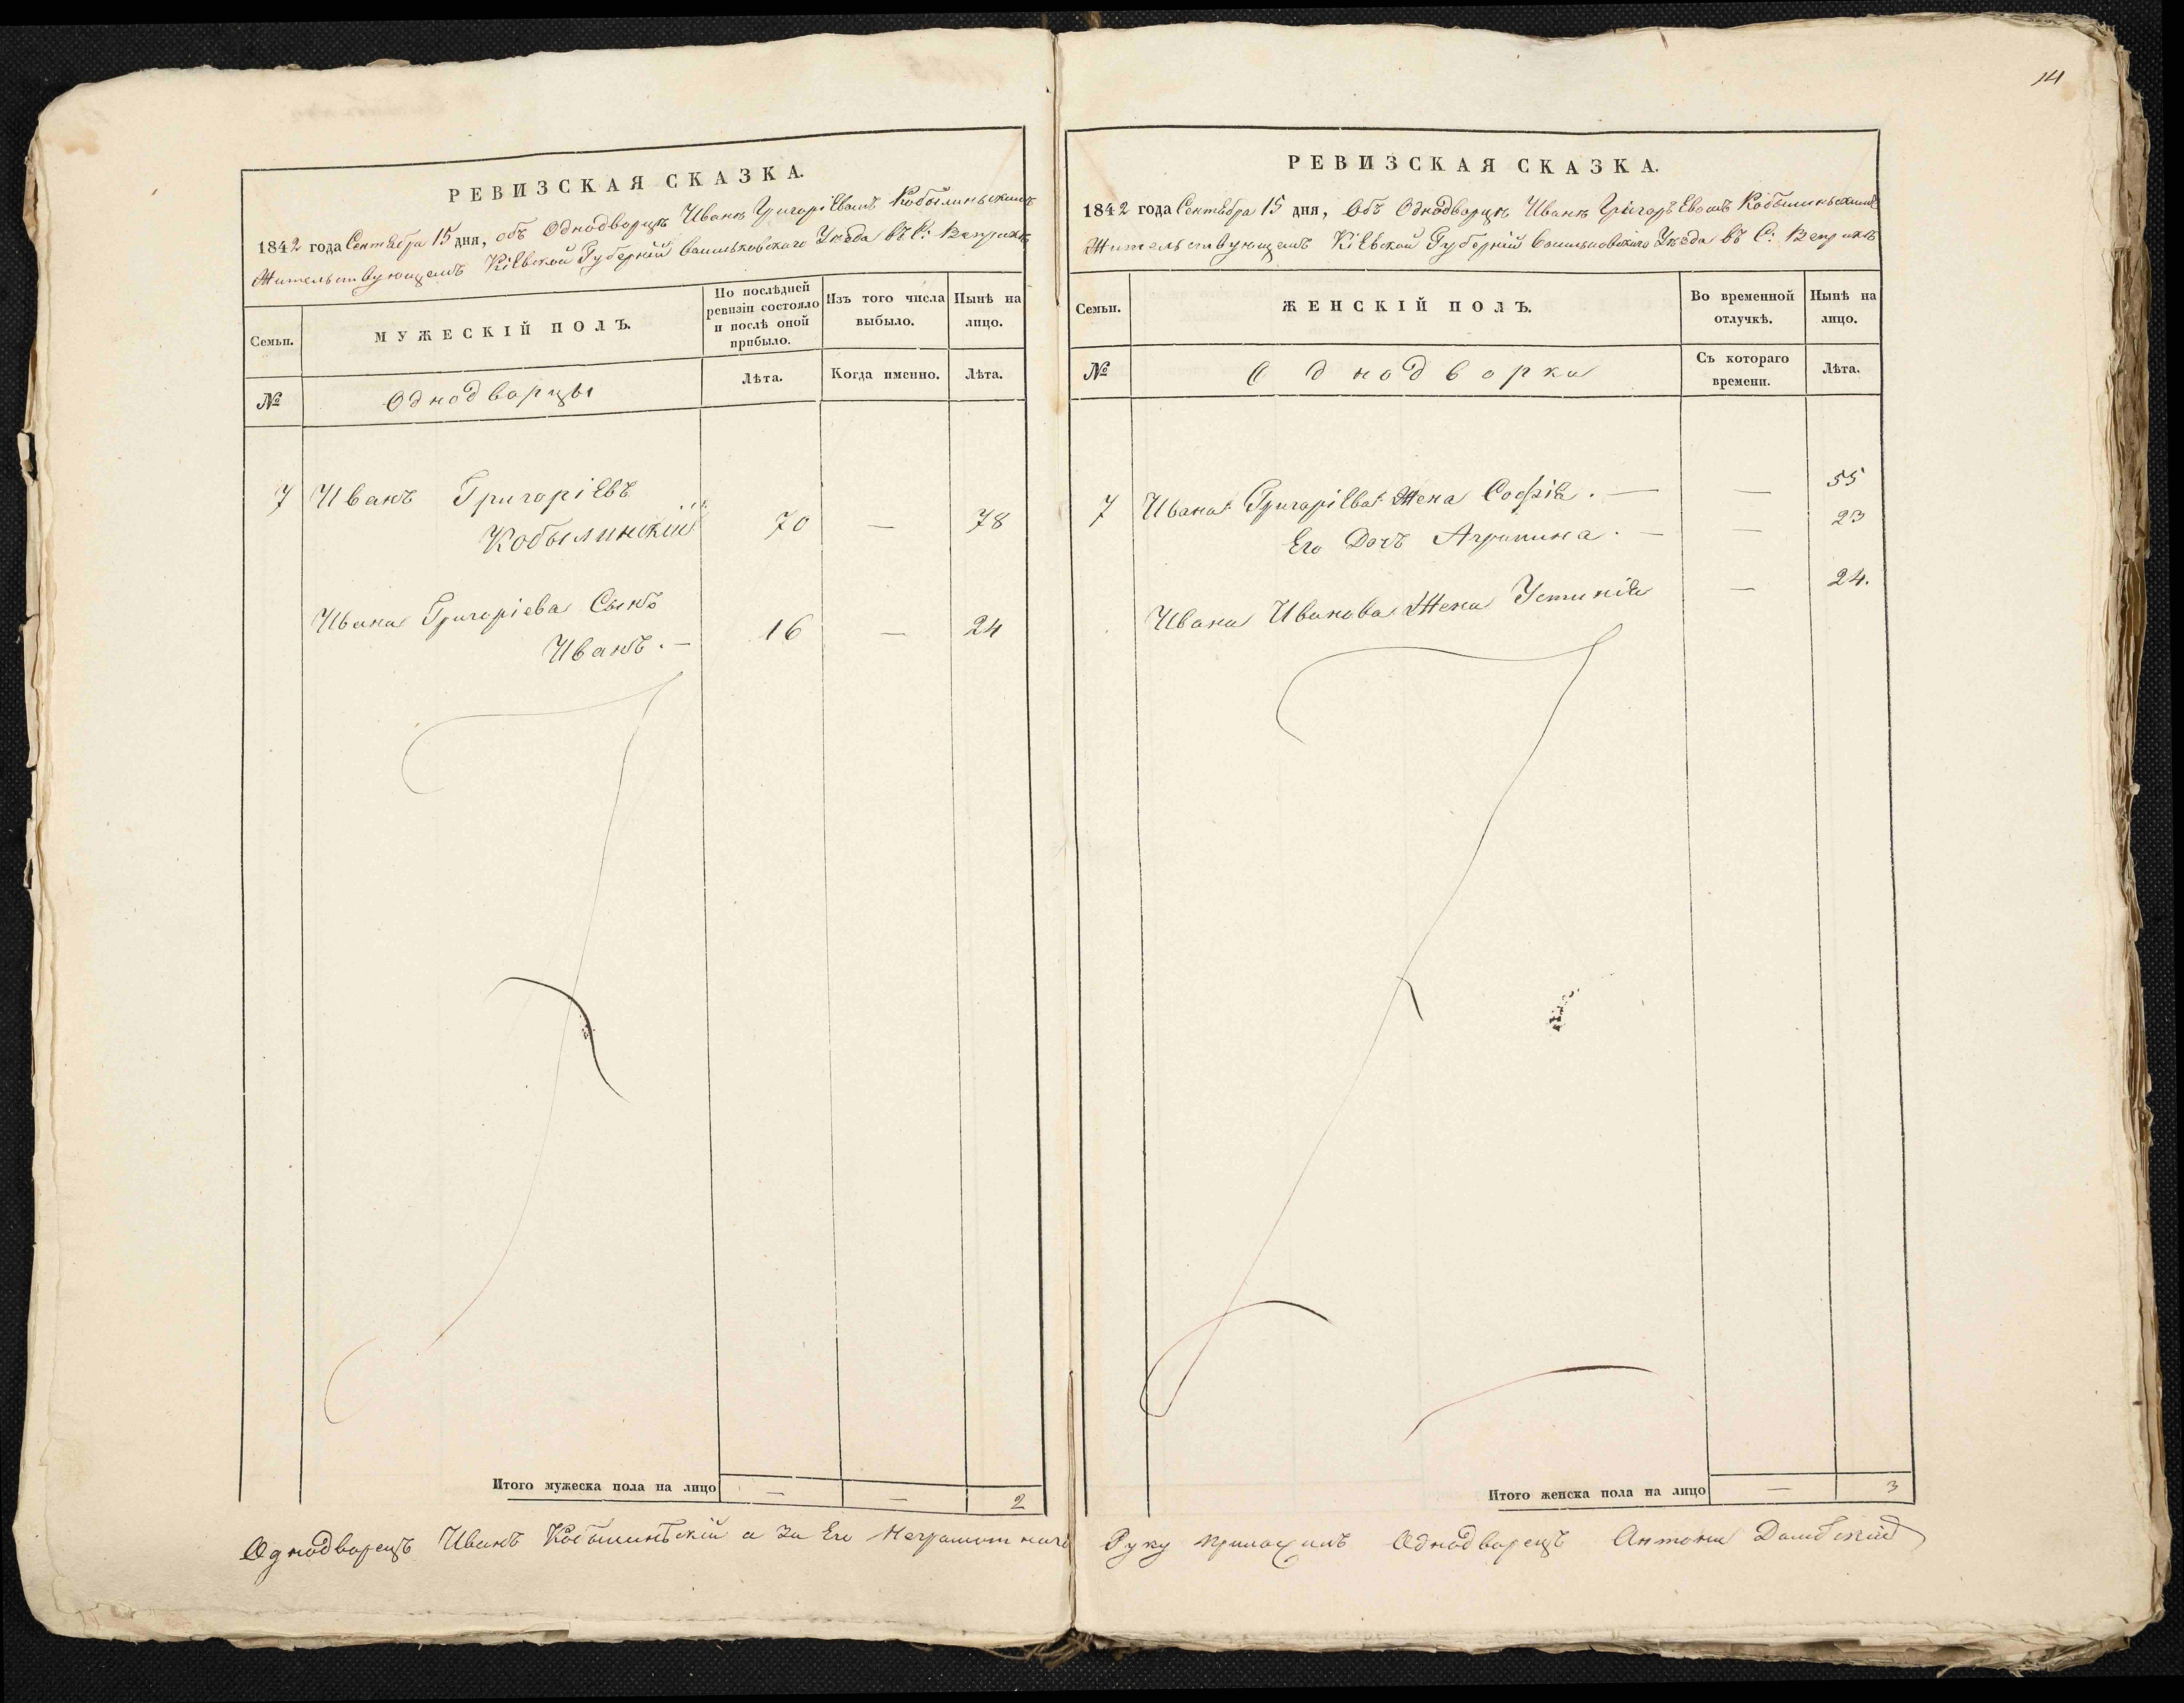 14
РЕВИЗСКАЯ СКАЗКА.
1842 года Сентебра 15 дня, объ Однодворцѣ Иванѣ Григоріевомъ Кобылиньскомъ
Жительствующемъ Кіевской Губерніи Васильковскаго Уѣзда въ С: Веприкѣ
Семьи.
МУЖЕСКІЙ ПОЛЪ.
По послѣдней ревизіи состояло и послѣ оной прибыло.
Изъ того числа выбыло.
Нынѣ на лицо.
№
Однодворцы
Лѣта.
Когда именно.
Лѣта.
7 Иванъ Григоріевъ
Кобылинскій 70 — 78
Ивана Григоріева Сынъ
Иванъ. — 16 — 24
Итого мужеска пола на лицо — — 2
Однодворецъ Иванъ Кобылинъскій а за Его Неграмотнаго
РЕВИЗСКАЯ СКАЗКА.
1842 года Сентебра 15 дня, Объ Однодворцѣ Иванѣ Григорьевомъ Кобылиньскомъ
Жительствующемъ Кіевской Губерніи Васильковскаго Уѣзда въ С: Веприкѣ
Семьи.
ЖЕНСКІЙ ПОЛЪ.
Во временной отлучкѣ.
Нынѣ на лицо.
№
Однодворки
Съ котораго времени.
Лѣта.
7 Ивана Григоріева Жена Софія. — — 55
Его Дочъ Агрипина. — — 23
Ивана Иванова Жена Устинія — 24.
Итого женска пола на лицо — 3
Руку приложилъ Однодворецъ Антони Домбскій